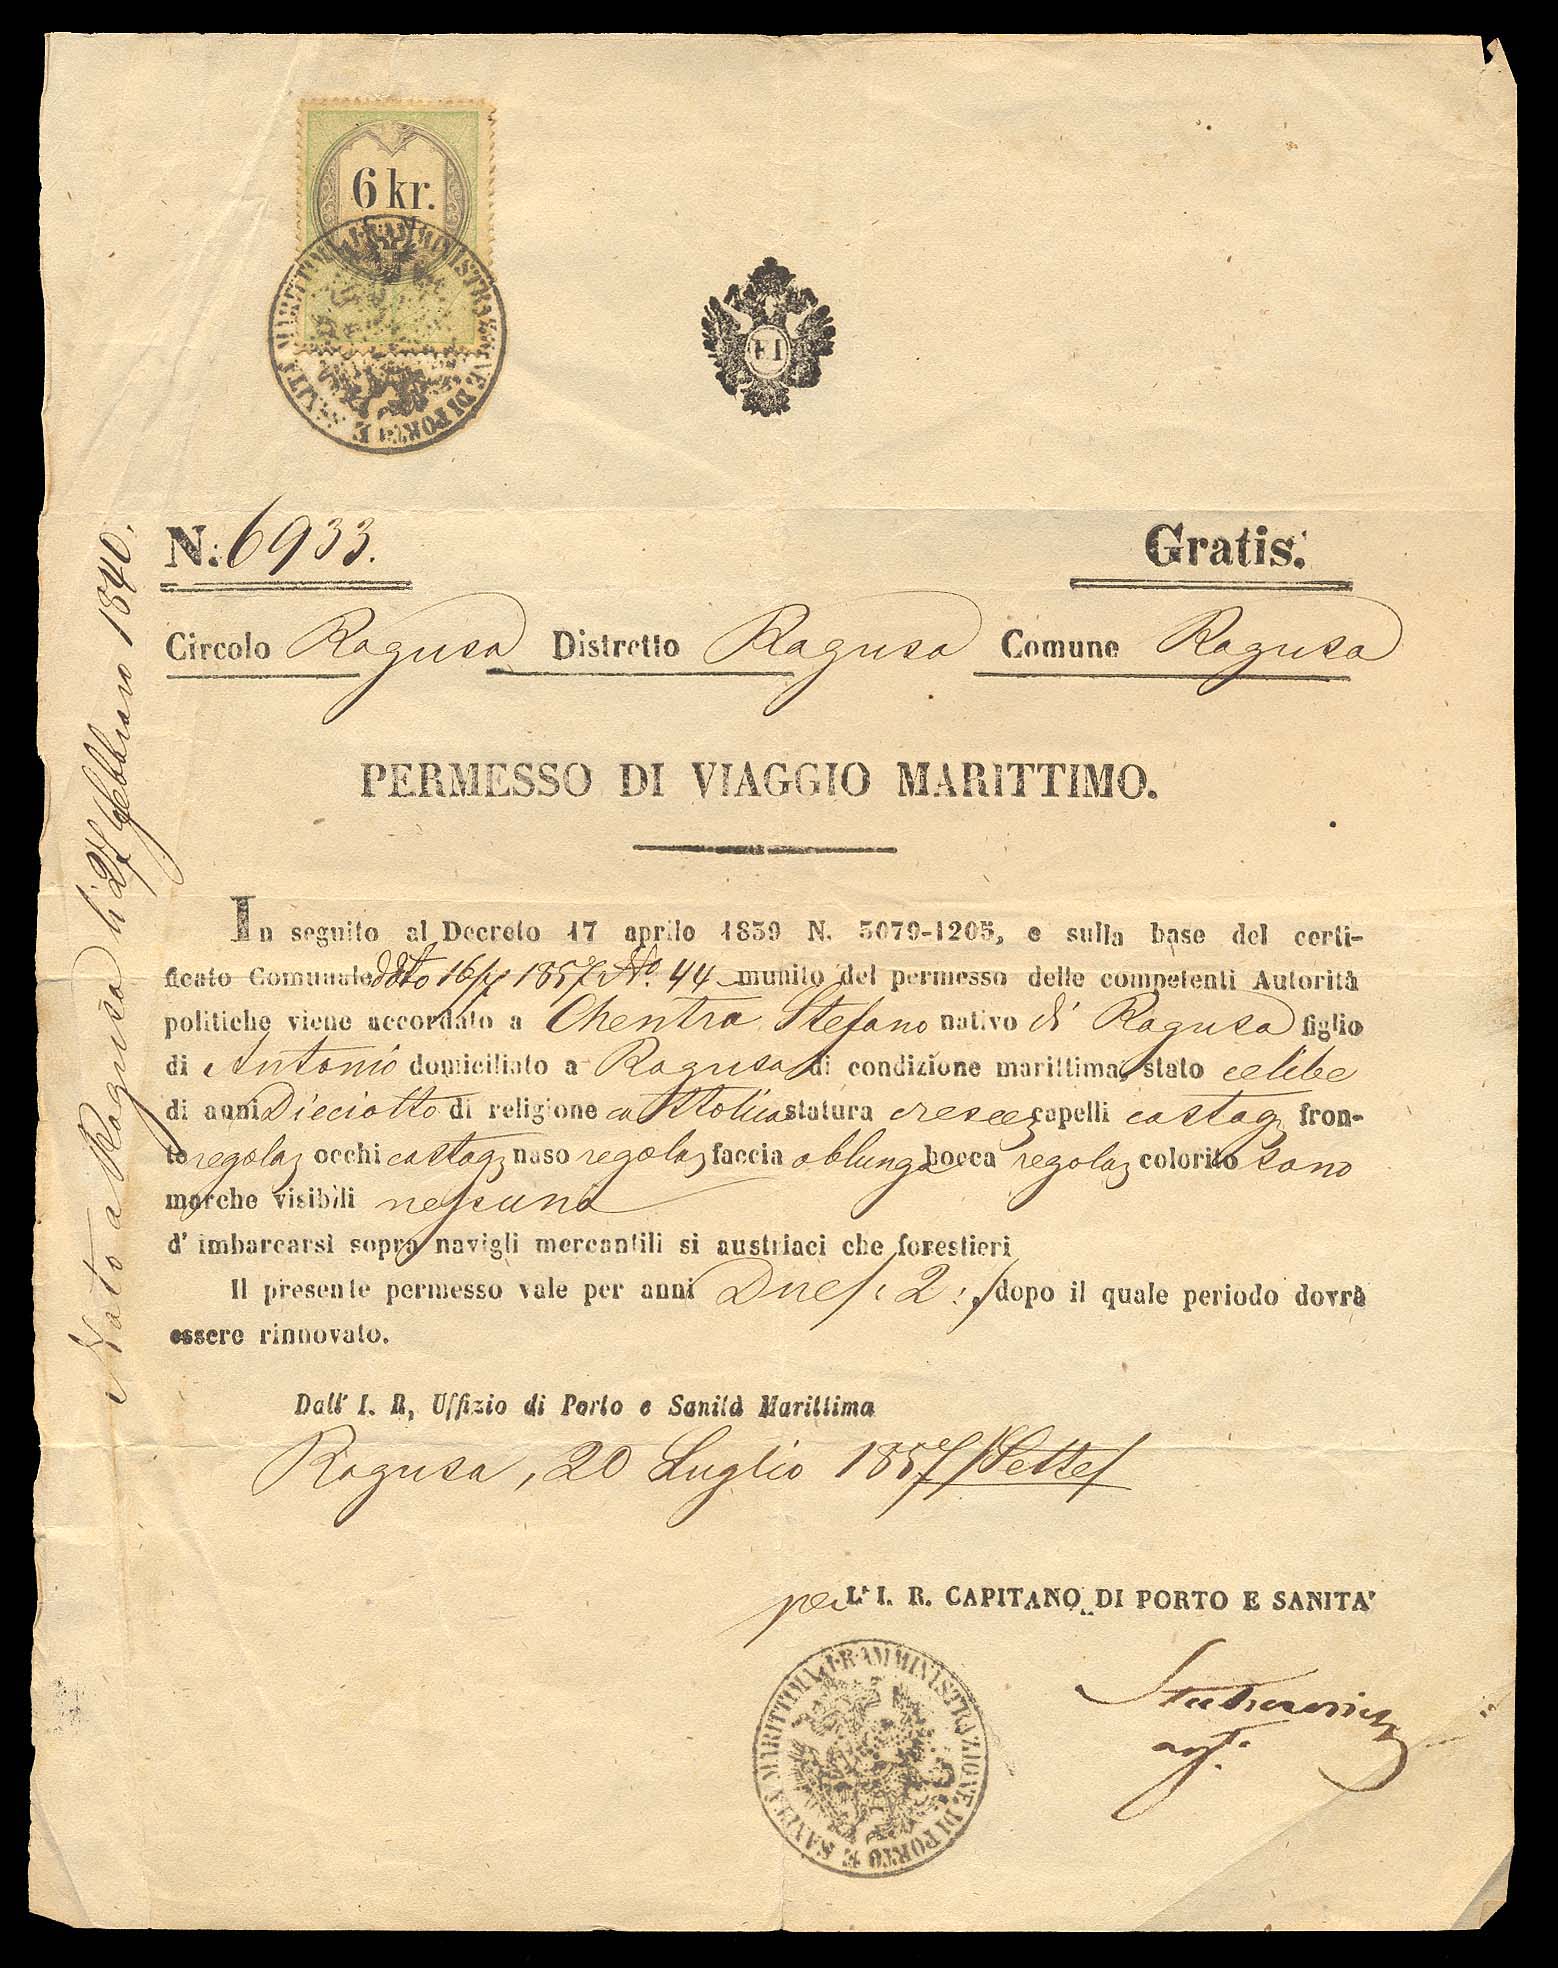 6 kr.
I. R. AMMINISTRAZIONE DI PORTO E SANITÀ MARITTIMA
FI
N: 6933.
Gratis.
Circolo Ragusa Distretto Ragusa Comune Ragusa
PERMESSO DI VIAGGIO MARITTIMO.
In seguito al Decreto 17 aprile 1839 N. 5079-1205, e sulla base del certi-
ficato Comunale ddto 1857 No. 44 munito del permesso delle competenti Autorità
politiche viene accordato a Chentra Stefano nativo di Ragusa figlio
di Antonio domiciliato a Ragusa di condizione marittima, stato celibe
di anni Dieciotto di religione cattolica statura cresce capelli castag fron-
te regolaz occhi castag naso regolaz faccia oblunga bocca regolaz colorito sano
marche visibili nessuna
d' imbarcarsi sopra navigli mercantili si austriaci che forestieri
Il presente permesso vale per anni Due /: 2 :/ dopo il quale periodo dovrà
essere rinnovato.
Dall' I. R, Uffizio di Porto e Sanità Marittima
Ragusa, 20 Luglio 1857 /Sette/
per L' I. R. CAPITANO DI PORTO E SANITA'
I. R. AMMINISTRAZIONE DI PORTO E SANITÀ MARITTIMA
agt.
Nato a Ragusa li 27 Febbraro 1840.